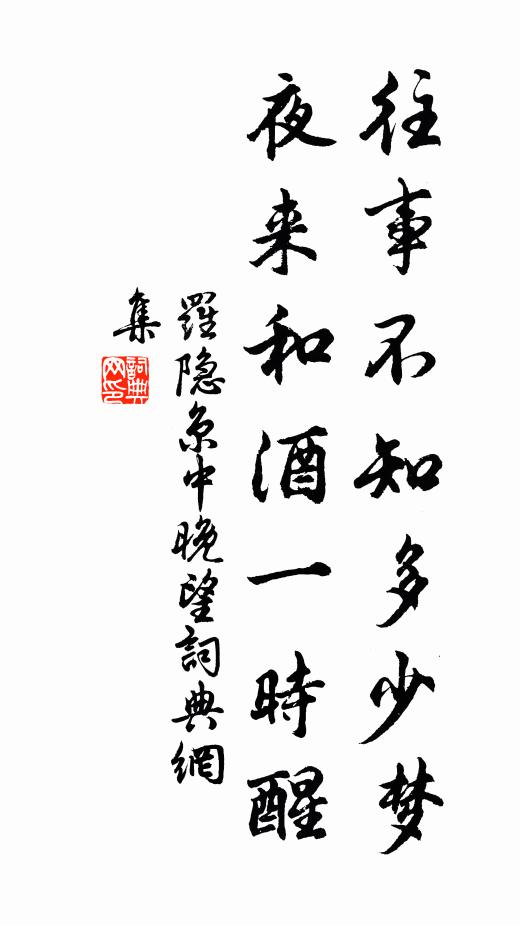 往事不知多少梦
夜来和酒一時醒
羅隐京中晚望詞典網
集
詞典
网印